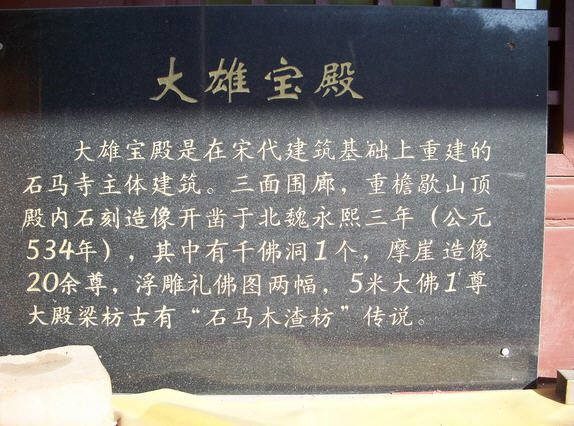 大雄宝殿
大雄宝殿是在宋代建筑基础上重建的
石马寺主体建筑。三面围廊，重檐歇山顶
殿内石刻造像开凿于北魏永熙三年（公元
534年），其中有千佛洞1个，摩崖造像
20余尊，浮雕礼佛图两幅，5米大佛1尊
大殿梁枋古有“石马木渣枋”传说。